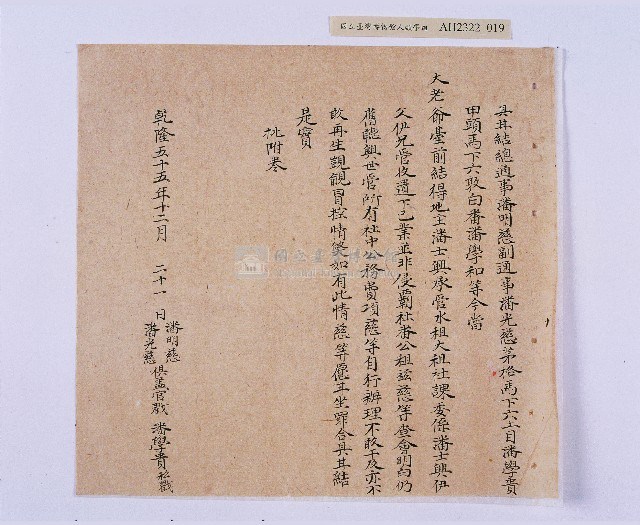 AH2322 019
具甘結總通事潘明慈副通事潘光慈茅格馬下六土目潘學貴
甲頭馬下六敦白番潘學和等今當
大老爺臺前結得地主潘士興承管水租大租社課委係潘士興伊
父伊兄管收遺下己業並非侵覇社番公租茲慈等查會明白仍
舊聽興世管所有社中公務費項慈等自行辦理不敢干及亦不
敢再生覬覦冒控情弊如有此情慈等愿甘坐罪合具甘結
是實
批附卷
乾隆五十五年十二月 二十一 日
潘明慈
潘光慈
俱蓋官戳
潘學貴私戳
國立臺灣博物館